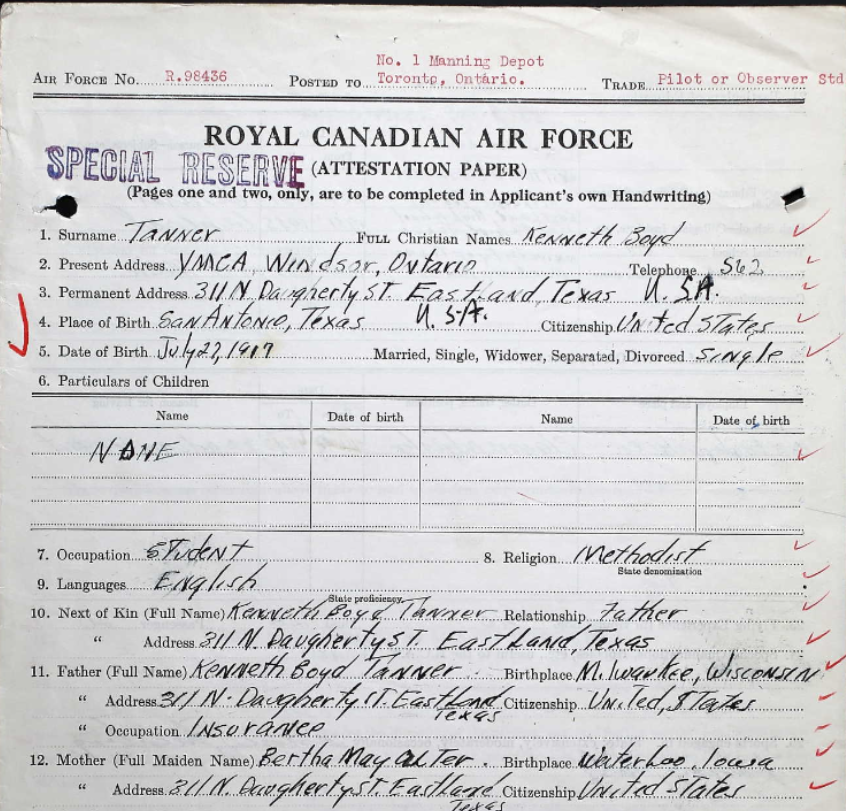 No. 1 Manning Depot
AIR FORCE No. R.98436 POSTED TO Toronto, Ontario. TRADE Pilot or Observer Std
ROYAL CANADIAN AIR FORCE
SPECIAL RESERVE (ATTESTATION PAPER)
(Pages one and two, only, are to be completed in Applicant's own Handwriting)
1. Surname Tanner FULL Christian Names Kenneth Boyd
2. Present Address YMCA, Windsor, Ontario Telephone 562
3. Permanent Address 311 N. Daugherty St. Eastland, Texas U.S.A.
4. Place of Birth San Antonio, Texas U.S.A. Citizenship United States
5. Date of Birth July 27, 1917 Married, Single, Widower, Separated, Divorced single
6. Particulars of Children
Name Date of birth Name Date of birth
NONE
7. Occupation Student 8. Religion Methodist
State denomination
9. Languages English
State proficiency
10. Next of Kin (Full Name) Kenneth Boyd Tanner Relationship Father
" Address 311 N. Daugherty St. Eastland, Texas
11. Father (Full Name) Kenneth Boyd Tanner Birthplace Milwaukee, Wisconsin
" Address 311 N. Daugherty St. Eastland Citizenship United, States
Texas
" Occupation Insurance
12. Mother (Full Maiden Name) Bertha May Birthplace Waterloo, Iowa
" Address 311 N. Daugherty St. Eastland, Citizenship United States
Texas